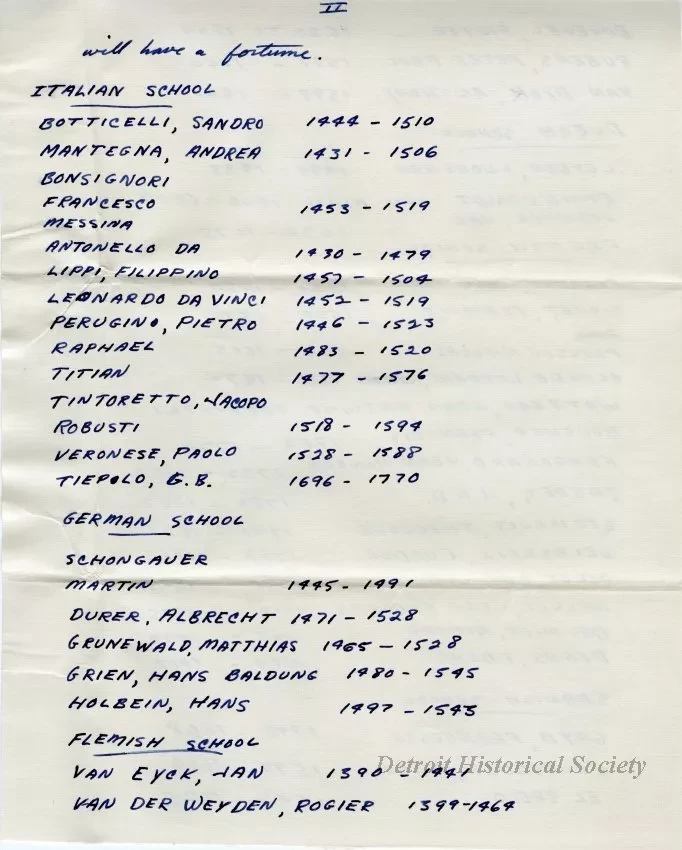 II
will have a fortune.
ITALIAN SCHOOL
BOTTICELLI, SANDRO 1444 - 1510
MANTEGNA, ANDREA 1431 - 1506
BONSIGNORI
FRANCESCO 1453 - 1519
MESSINA
ANTONELLO DA 1430 - 1479
LIPPI, FILIPPINO 1457 - 1504
LEONARDO DA VINCI 1452 - 1519
PERUGINO, PIETRO 1446 - 1523
RAPHAEL 1483 - 1520
TITIAN 1477 - 1576
TINTORETTO, JACOPO
ROBUSTI 1518 - 1594
VERONESE, PAOLO 1528 - 1588
TIEPOLO, G.B. 1696 - 1770
GERMAN SCHOOL
SCHONGAUER
MARTIN 1445 - 1491
DURER, ALBRECHT 1471 - 1528
GRUNEWALD, MATTHIAS 1465 - 1528
GRIEN, HANS BALDUNG 1480 - 1545
HOLBEIN, HANS 1497 - 1543
FLEMISH SCHOOL
VAN EYCK, JAN 1390 - 1441
Detroit Historical Society
VAN DER WEYDEN, ROGIER 1399-1464